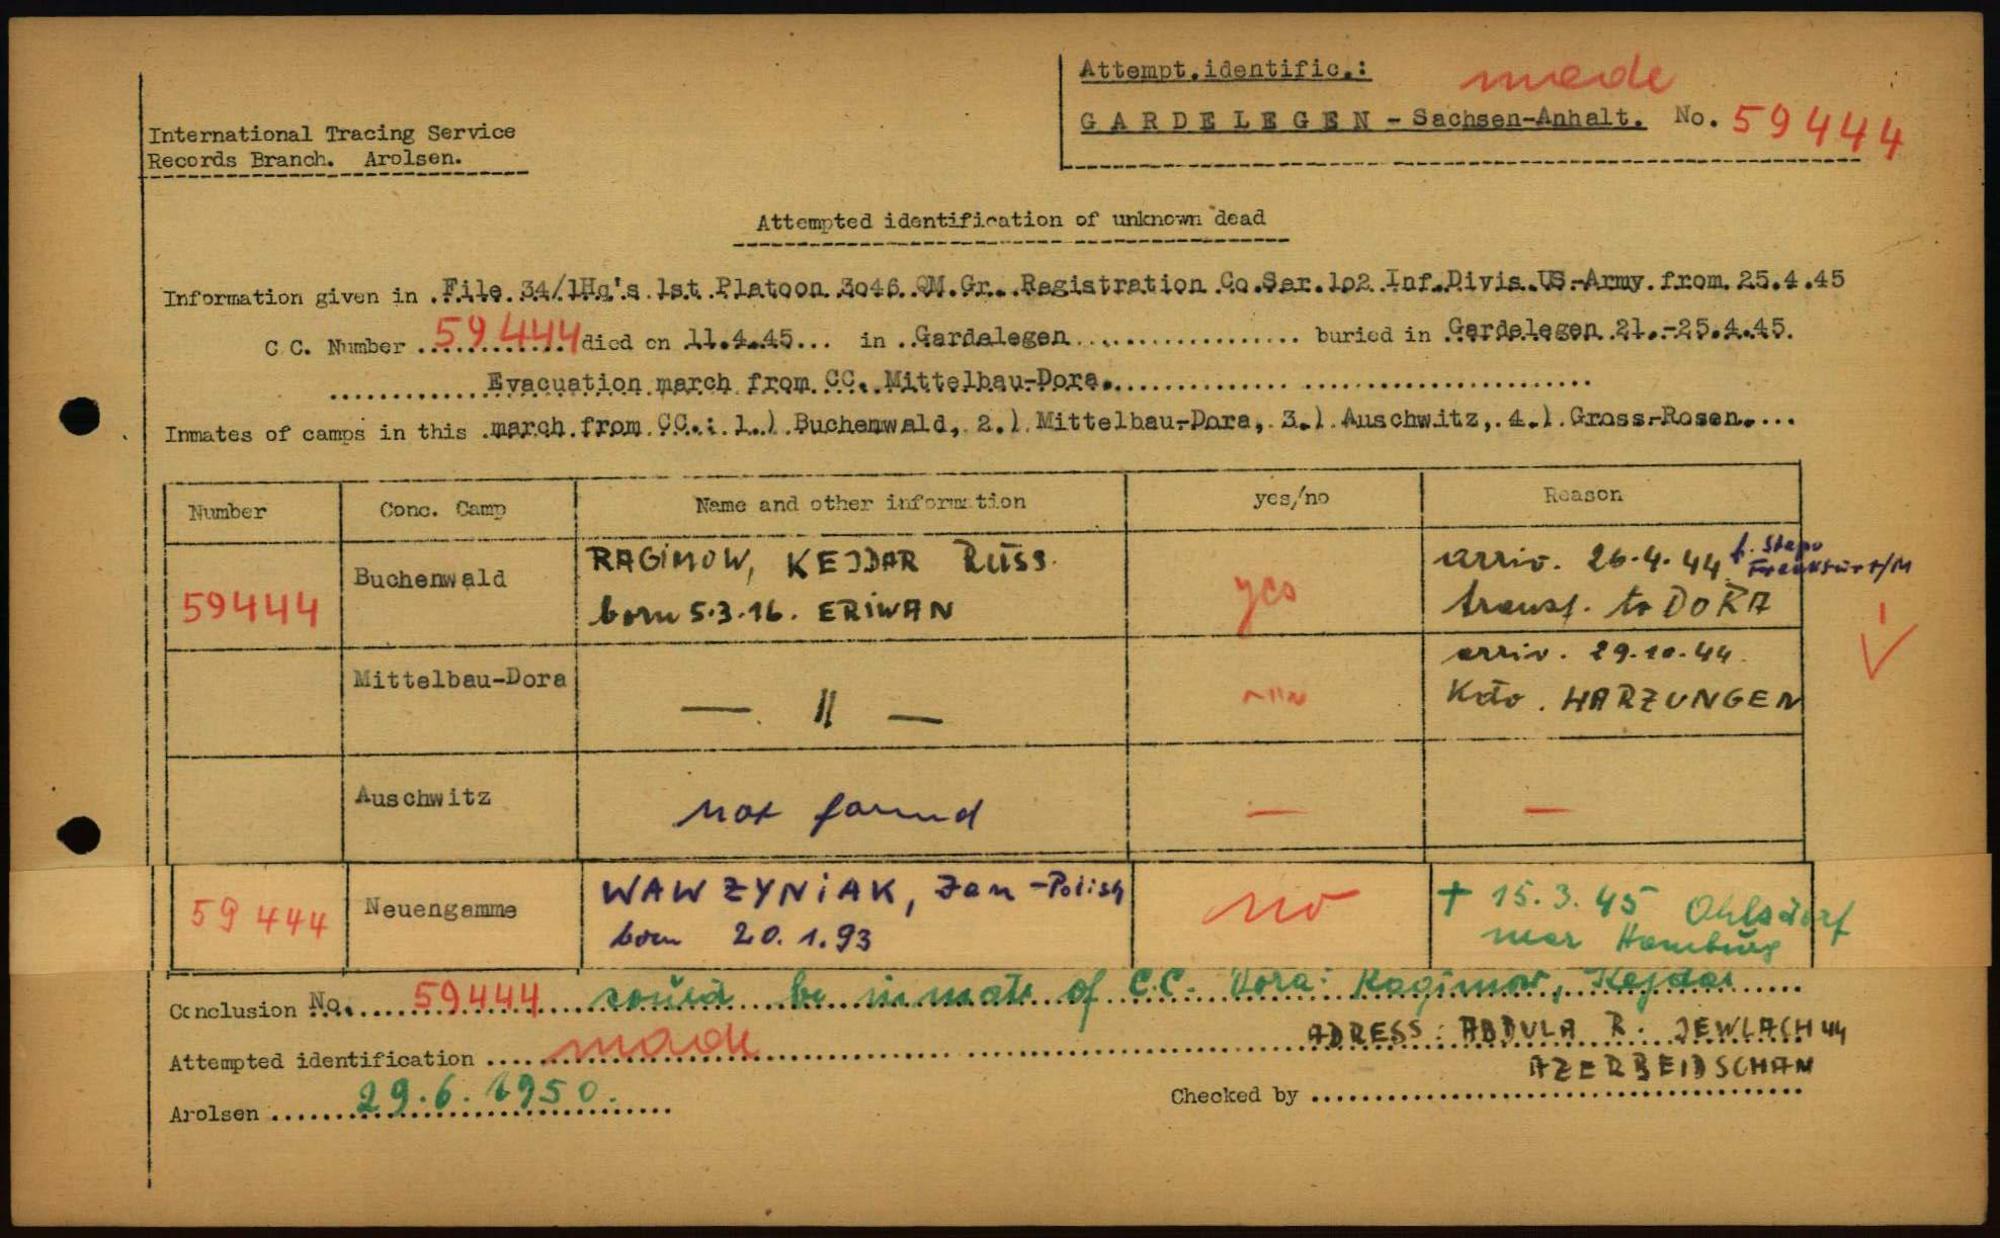 Attempt.identific.: made
GARDELEGEN - Sachsen-Anhalt. No. 59444
International Tracing Service
Records Branch. Arolsen.
Attempted identification of unknown dead
Information given in .File.34/1Hq's.1st.Platoon.3o46.QM.Gr..Registration.Co.Ser.1o2.Inf.Divis.US-Army.from.25.4.45
C.C. Number 59444 died on 11.4.45... in ..Gardelegen.................. buried in Gardelegen 21.-25.4.45.
............Evacuation march from CC. Mittelbau-Dora...................................
Inmates of camps in this .march.from.CC.: 1.).Buchenwald, 2.).Mittelbau-Dora, 3.).Auschwitz, 4.).Gross-Rosen....
Number Conc. Camp Name and other information yes/no Reason
59444 Buchenwald RAGIMOW, KEJDAR RUSS. yes arriv. 26.4.44 f. Stapo Frankfurt/M
born 5.3.16. ERIWAN transf. to DORA
Mittelbau-Dora — " — ~"~ arriv. 29.10.44.
Kdo. HARZUNGEN
Auschwitz not found — —
59444 Neuengamme WAWZYNIAK, Jan - Polish no + 15.3.45 Ohlsdorf
born 20.1.93 near Hamburg
Conclusion No. 59444 could be inmate of C.C. Dora: Ragimow, Kejdar
Attempted identification made ADRESS: ABDULA R. JEWLACH 44
AZERBEIDSCHAN
Arolsen 29.6.1950. Checked by